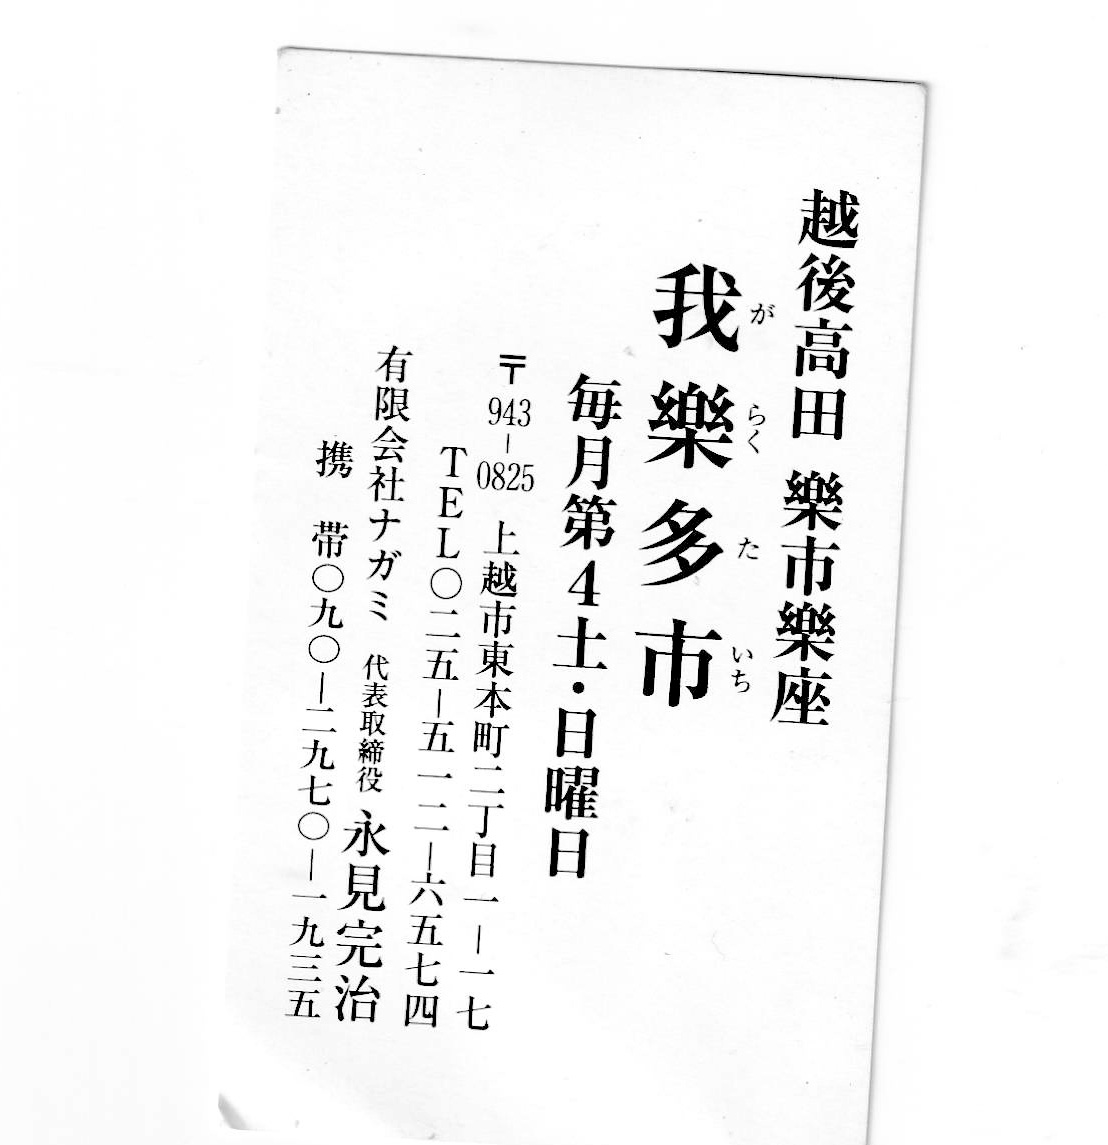 越後高田 樂市樂座
我樂多市
が らく た いち
毎月第4土・日曜日
〒943-0825 上越市東本町二丁目一ー一七
TEL〇二五ー五一二ー六五七四
有限会社ナガミ 代表取締役 永見完治
携 帯〇九〇ー二九七〇ー一九三五